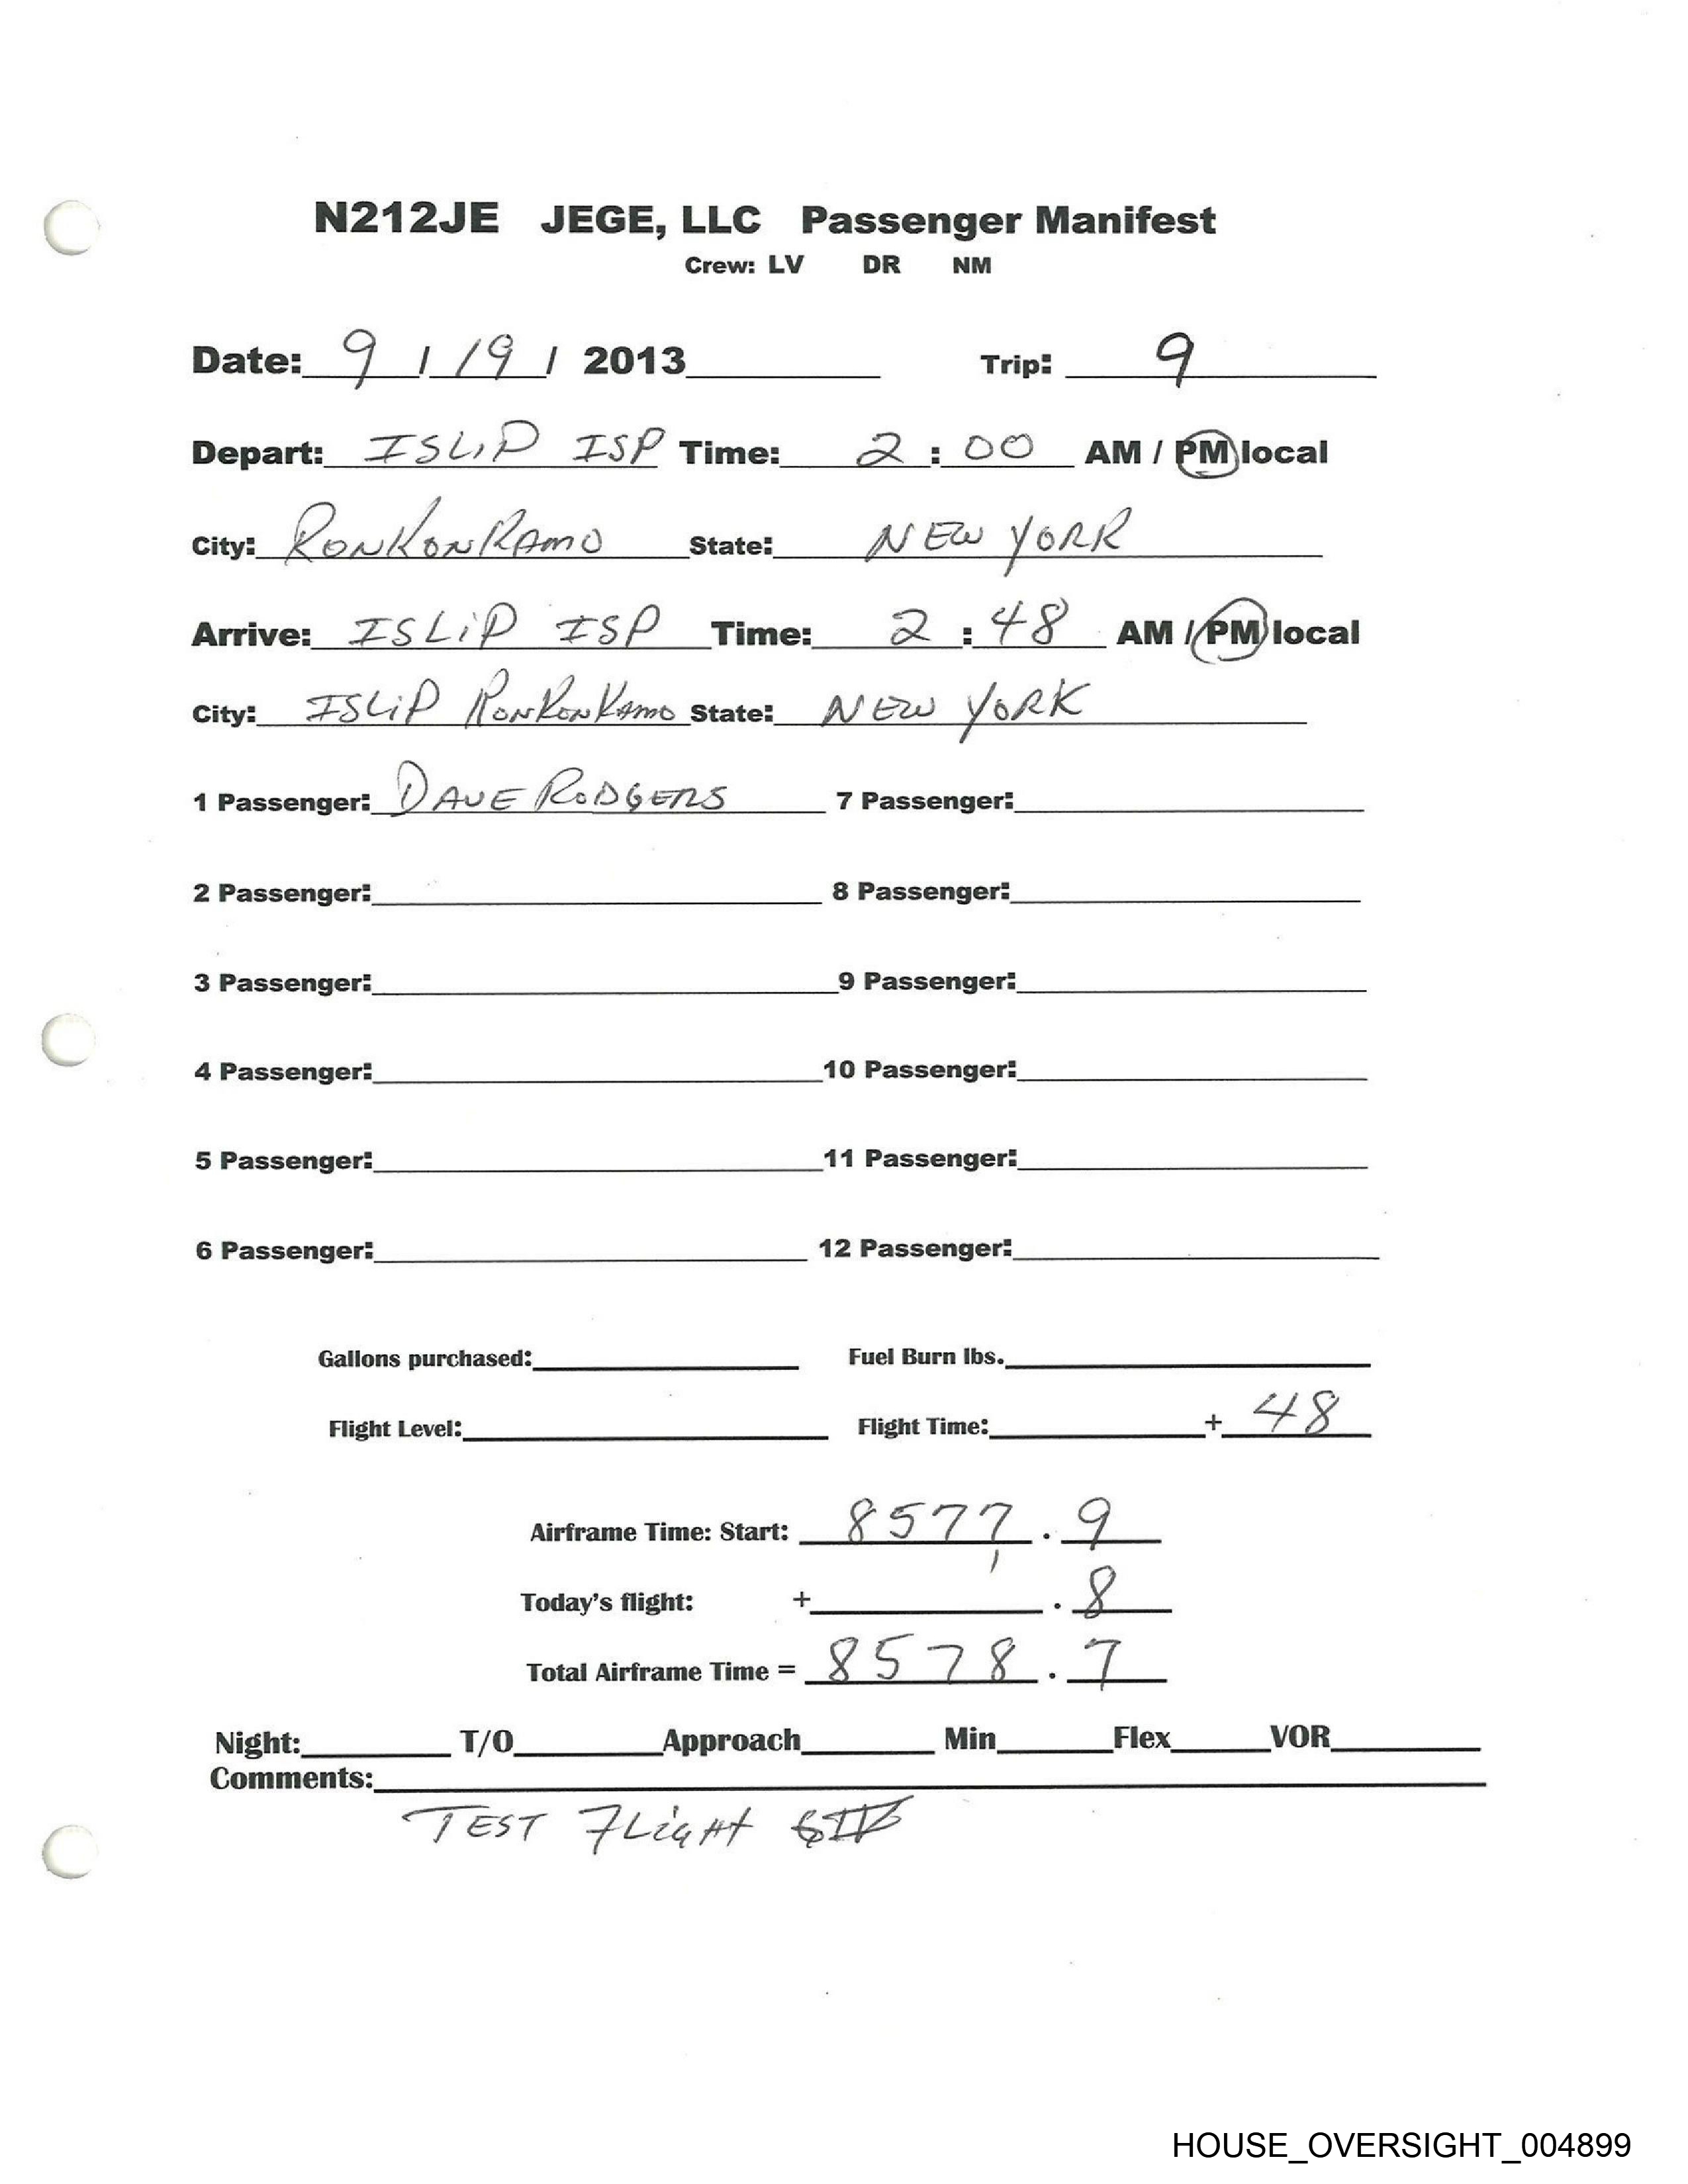 N212JE JEGE, LLC Passenger Manifest
Crew: LV DR NM
Date: 9 / 19 / 2013 Trip: 9
Depart: ISLiP ISP Time: 2 : 00 AM / PM local
City: RONKONKAMO State: NEW YORK
Arrive: ISLiP ISP Time: 2 : 48 AM / PM local
City: ISLiP RONKONKAMO State: NEW YORK
1 Passenger: DAVE RODGERS 7 Passenger:
2 Passenger: 8 Passenger:
3 Passenger: 9 Passenger:
4 Passenger: 10 Passenger:
5 Passenger: 11 Passenger:
6 Passenger: 12 Passenger:
Gallons purchased: Fuel Burn lbs.
Flight Level: Flight Time: + 48
Airframe Time: Start: 8577 . 9
Today's flight: + . 8
Total Airframe Time = 8578 . 7
Night: T/O Approach Min Flex VOR
Comments:
TEST FLiGHT
HOUSE_OVERSIGHT_004899